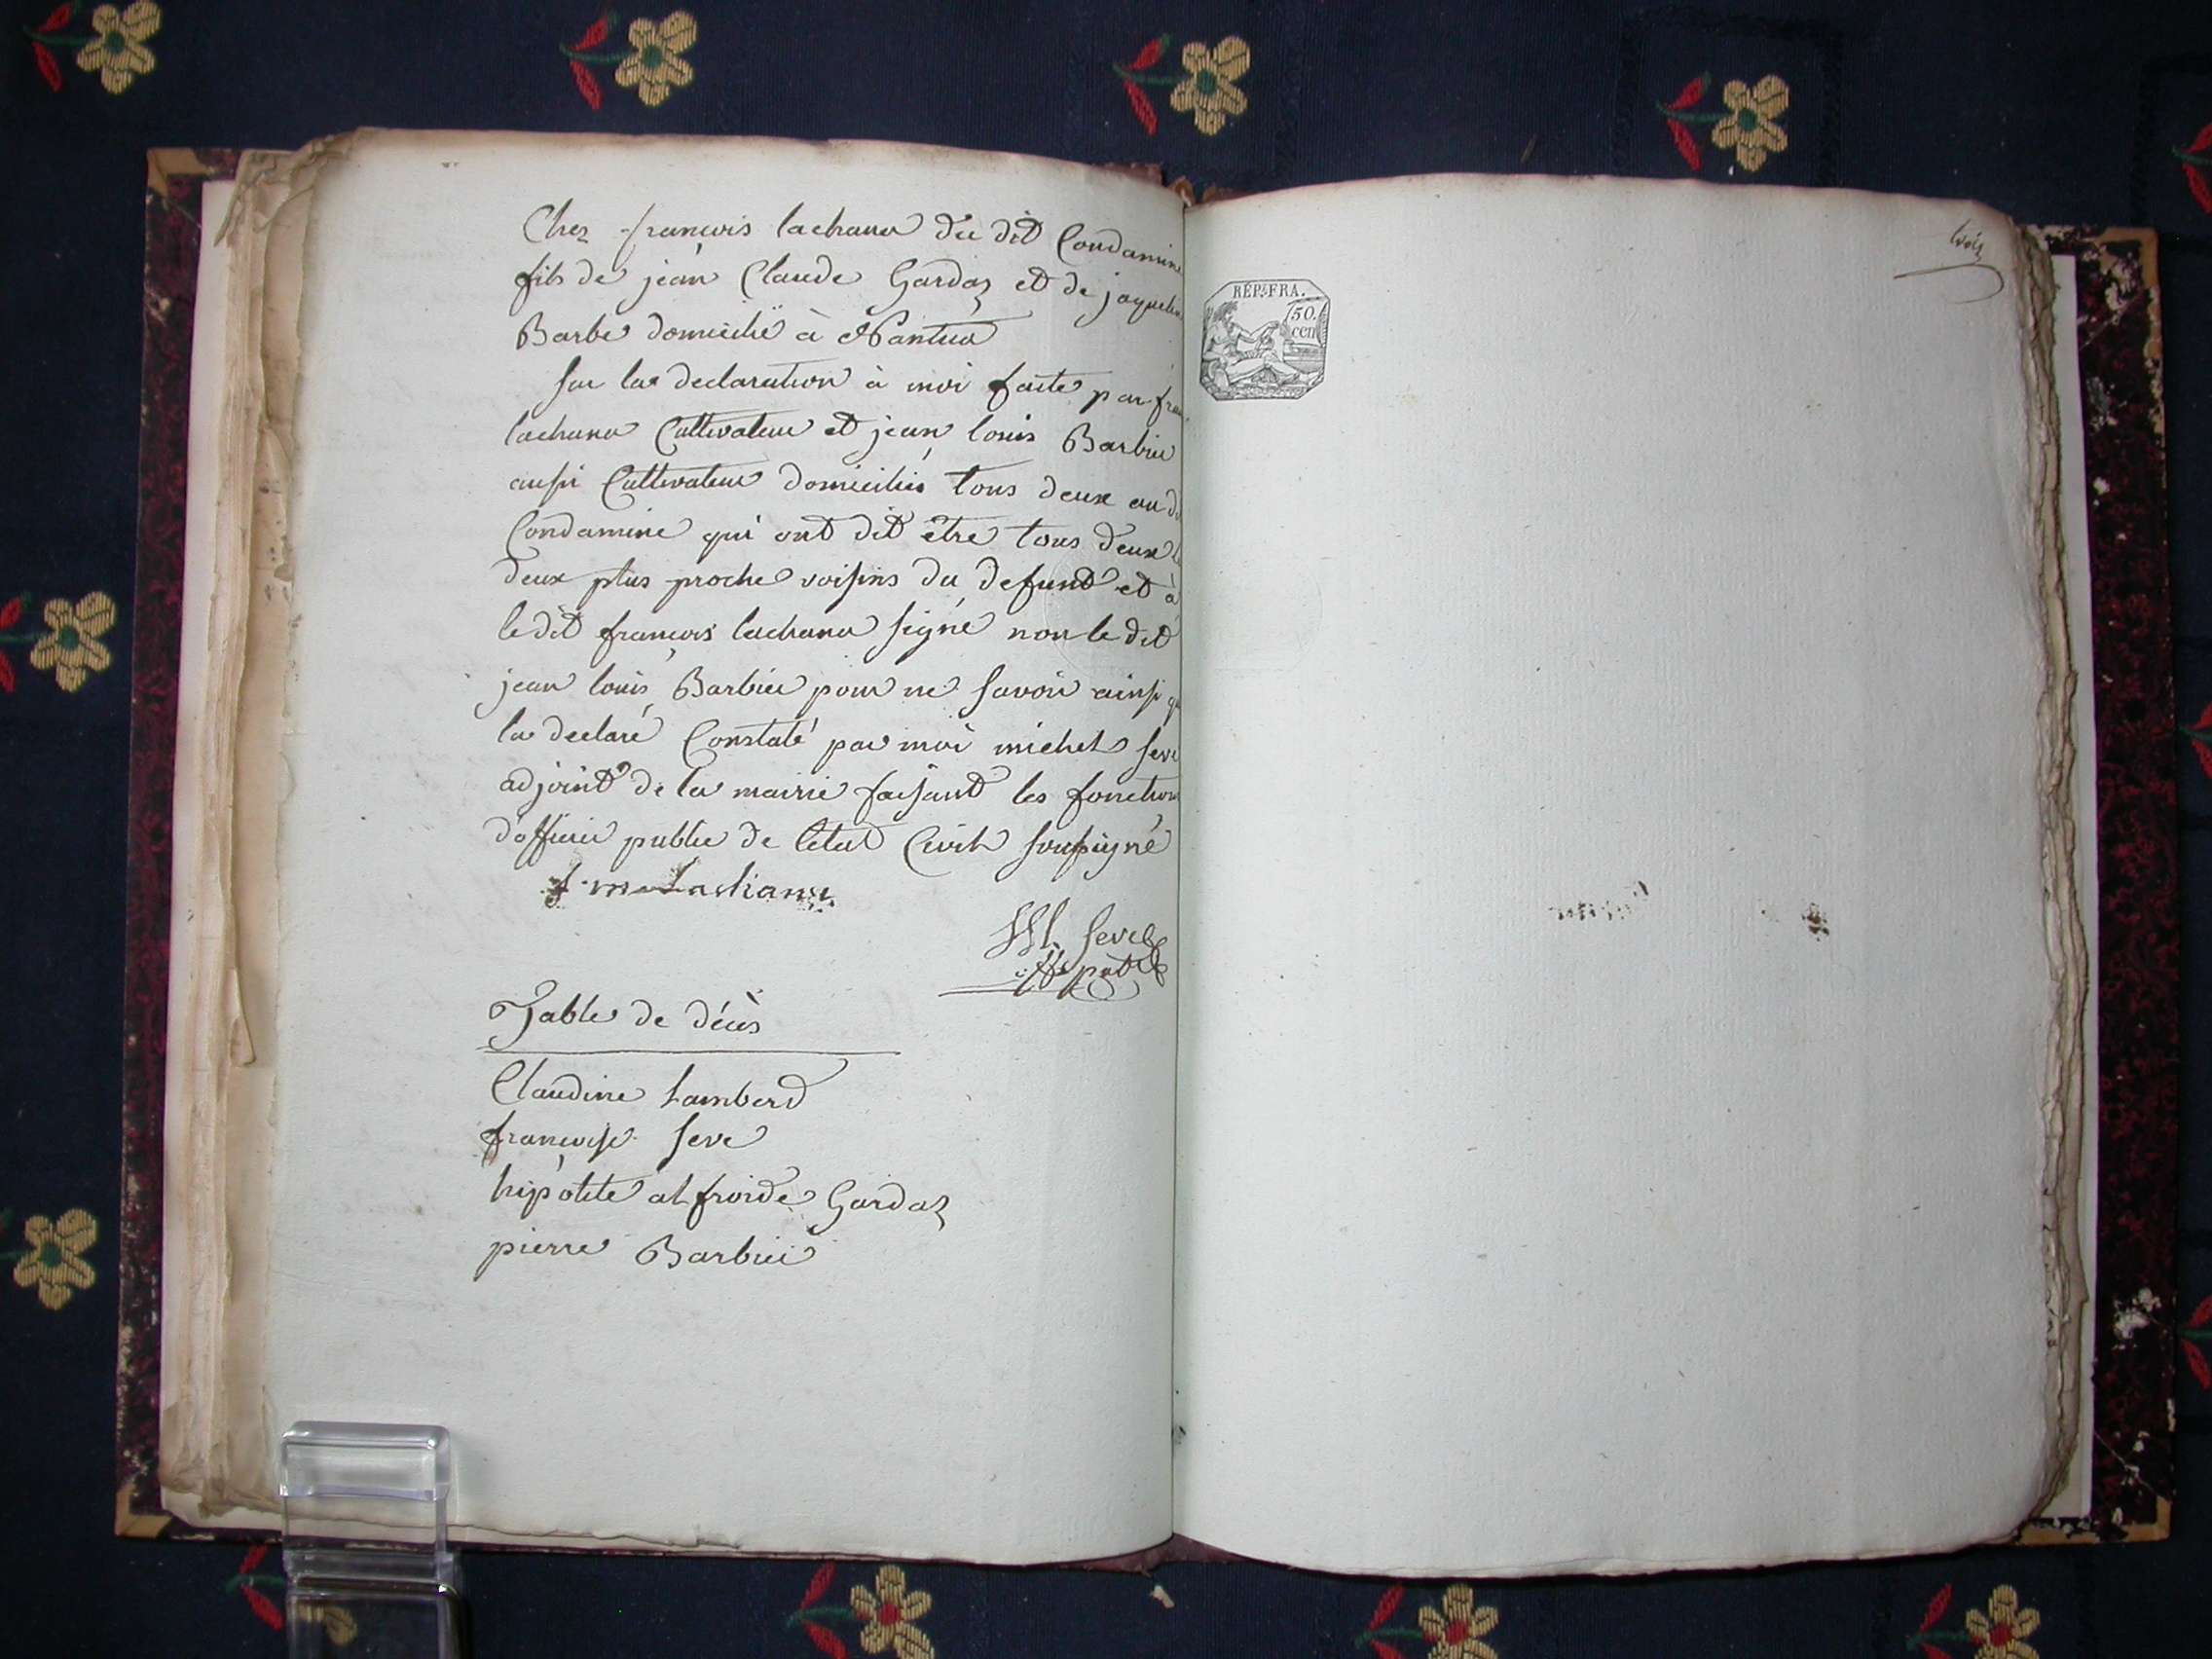 Chez françois lachana du dit Condamine
fils de jean Claude Gardaz et de jaqueline
Barbe domicilié à Nantua
sur la declaration à moi faite par fran
lachana Cultivateur et jean louis Barbier
aussi Cultivateur domiciliés tous deux au d
Condamine qui ont dit être tous deux
deux plus proche voisins du defunt et à
le dit françois lachana signé non le dit
jean louis Barbier pour ne savoir ainsi q
la declaré Constaté par moi michel seve
adjoint de la mairie faisant les fonction
dofficier public de letat Civil soussigné
Lachana
seve
Table de décès
Claudine Lamberd
françoise seve
hipolite alfroide Gardaz
pierre Barbier
trois
RÉP. FRA.
50.
cen